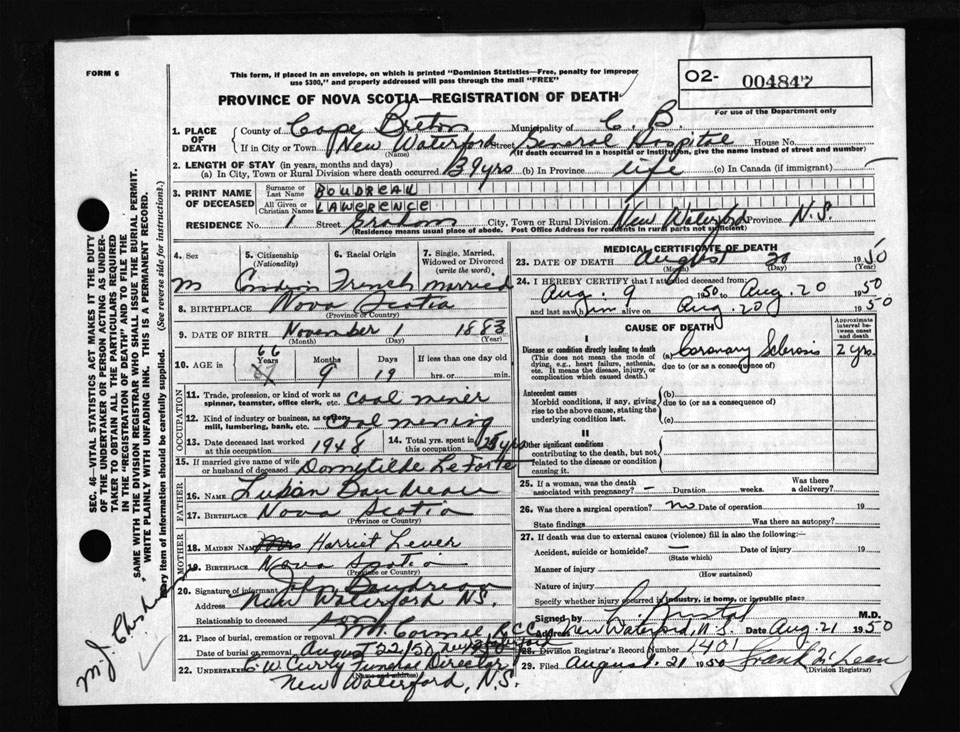 FORM 6
This form, if placed in an envelope, on which is printed "Dominion Statistics—Free, penalty for improper
use $300," and properly addressed will pass through the mail "FREE"
O2- 004847
PROVINCE OF NOVA SCOTIA—REGISTRATION OF DEATH
For use of the Department only
1. PLACE OF DEATH
County of Cape Breton Municipality of C. B.
If in City or Town New Waterford Street General Hospital House No.
(Name) (If death occurred in a hospital or institution, give the name instead of street and number)
2. LENGTH OF STAY (in years, months and days)
(a) In City, Town or Rural Division where death occurred 39 yrs (b) In Province life (c) In Canada (if immigrant) —
3. PRINT NAME OF DECEASED
Surname or Last Name BOUDREAU
All Given or Christian Names LAWERENCE
RESIDENCE No. 1 Street Graham City, Town or Rural Division New Waterford Province N.S.
(Residence means usual place of abode. Post Office Address for residents in rural parts not sufficient)
4. Sex
5. Citizenship (Nationality)
6. Racial Origin
7. Single, Married, Widowed or Divorced (write the word)
m French married
8. BIRTHPLACE Nova Scotia
(Province or Country)
9. DATE OF BIRTH November 1 1883
(Month) (Day) (Year)
10. AGE in
Years Months Days If less than one day old
66 67 9 19 hrs. or min.
OCCUPATION
11. Trade, profession, or kind of work as spinner, teamster, office clerk, etc. coal miner
12. Kind of industry or business, as cotton mill, lumbering, bank, etc. coal mining
13. Date deceased last worked at this occupation 1948
14. Total yrs. spent in this occupation
15. If married give name of wife or husband of deceased Domitilde LeForte
FATHER
16. NAME Boudreau
17. BIRTHPLACE Nova Scotia
(Province or Country)
MOTHER
18. MAIDEN NAME Mrs Harriet Lever
19. BIRTHPLACE Nova Scotia
(Province or Country)
20. Signature of informant John Boudreau
Address New Waterford N.S.
Relationship to deceased son
21. Place of burial, cremation or removal Mt. Carmel R.C.C.
Date of burial or removal August 22/50 New Waterford
22. UNDERTAKER C. W. Curry Funeral Director
(Name and Address)
New Waterford, N.S.
MEDICAL CERTIFICATE OF DEATH
23. DATE OF DEATH August 20 1950
(Month) (Day) (Year)
24. I HEREBY CERTIFY that I attended deceased from
Aug. 9 1950 to Aug. 20 1950
and last saw him alive on Aug. 20 1950
CAUSE OF DEATH
Approximate interval between onset and death
I
Disease or condition directly leading to death
(This does not mean the mode of dying, e.g., heart failure, asthenia, etc. It means the disease, injury, or complication which caused death.)
(a) Coronary Sclerosis 2 yrs.
due to (or as a consequence of)
Antecedent causes
Morbid conditions, if any, giving rise to the above cause, stating the underlying condition last.
(b)
due to (or as a consequence of)
(c)
II
Other significant conditions contributing to the death, but not related to the disease or condition causing it.
25. If a woman, was the death associated with pregnancy? — Duration weeks. Was there a delivery?
26. Was there a surgical operation? no Date of operation 19
State findings Was there an autopsy?
27. If death was due to external causes (violence) fill in also the following:—
Accident, suicide or homicide? — Date of injury 19
(State which)
Manner of injury
(How sustained)
Nature of injury
Specify whether injury occurred in industry, in home, or in public place
Signed by M.D.
Address New Waterford, N.S. Date Aug. 21 1950
28. Division Registrar's Record Number 1401
29. Filed August 21 1950 Frank McLean
(Division Registrar)
SEC. 46—VITAL STATISTICS ACT MAKES IT THE DUTY
OF THE UNDERTAKER OR PERSON ACTING AS UNDER-
TAKER TO OBTAIN ALL THE PARTICULARS REQUIRED
IN THE "REGISTRATION OF DEATH" AND TO FILE THE
SAME WITH THE DIVISION REGISTRAR WHO SHALL ISSUE THE BURIAL PERMIT.
WRITE PLAINLY WITH UNFADING INK. THIS IS A PERMANENT RECORD.
Every item of information should be carefully supplied. (See reverse side for instructions.)
M. J.